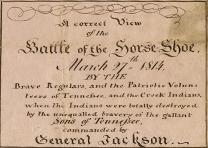 A correct View
of the
Battle of the Horse Shoe,
March 27th 1814.
BY THE
Brave Regulars, and the Patriotic Volun-
teers of Tennessee, and the Creek Indians,
when the Indians were totally destroyed
by the unequalled bravery of the gallant
Sons of Tennessee,
commanded by
General Jackson.